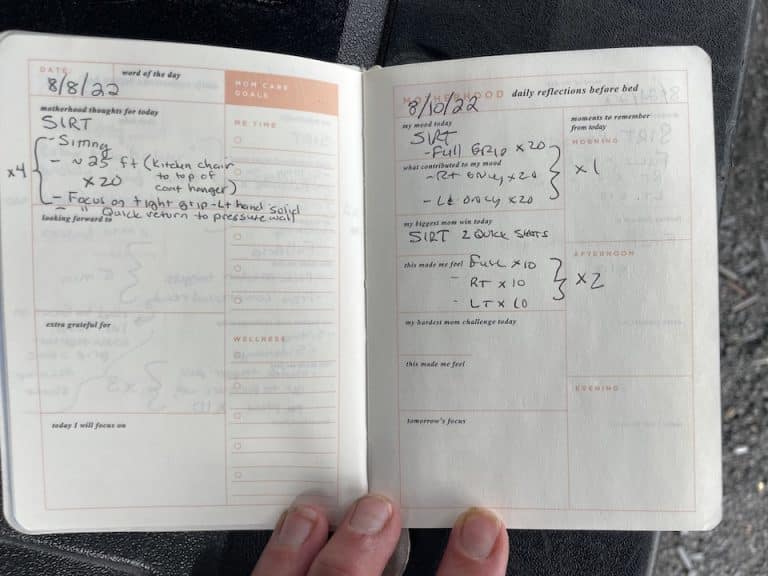 DATE
8/8/22
word of the day
MOM CARE
GOALS
motherhood thoughts for today
SIRT
ME TIME
x4
- ~25 ft (kitchen chair
to top of
coat hanger)
x20
- Focus on tight grip - Lt hand solid
- Quick return to pressure wall
looking forward to
extra grateful for
WELLNESS
today I will focus on
MOTHERHOOD daily reflections before bed
8/10/22
my mood today
SIRT
- Full Grip x20
what contributed to my mood
- Rt only x20
- Lt only x20
x1
moments to remember
from today
MORNING
my biggest mom win today
SIRT 2 Quick Shots
this made me feel
Full x10
- RT x10
- LT x10
x2
AFTERNOON
my hardest mom challenge today
this made me feel
EVENING
tomorrow's focus